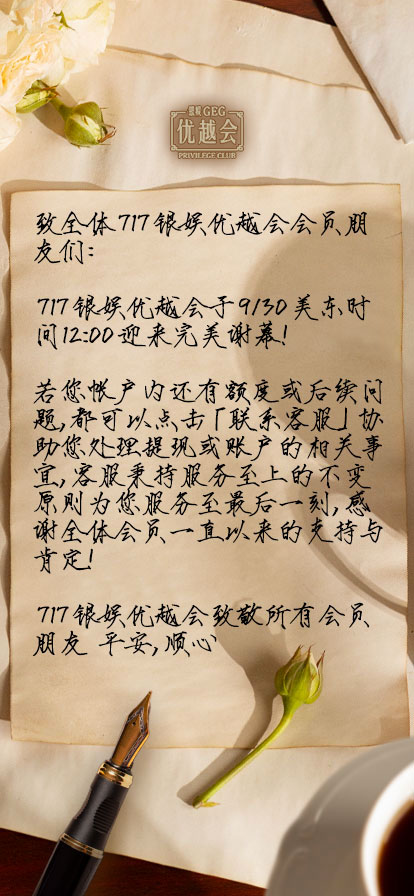 银娱 GEG
优越会
PRIVILEGE CLUB
致全体717银娱优越会会员朋
友们：
717银娱优越会于9/30美东时
间12:00迎来完美谢幕!
若您帐户内还有额度或后续问
题,都可以点击「联系客服」协
助您处理提现或账户的相关事
宜,客服秉持服务至上的不变
原则为您服务至最后一刻,感
谢全体会员一直以来的支持与
肯定!
717银娱优越会致敬所有会员
朋友 平安,顺心